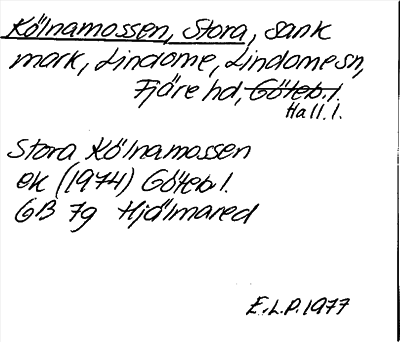 Kölnamossen, Stora, sank
mark, Lindome, Lindome sn,
Fjäre hd, Göteb. l.
Hall. l.
Stora Kölnamossen
ek (1974) Göteb l.
GB 7g Hjälmared
E.L.P. 1977